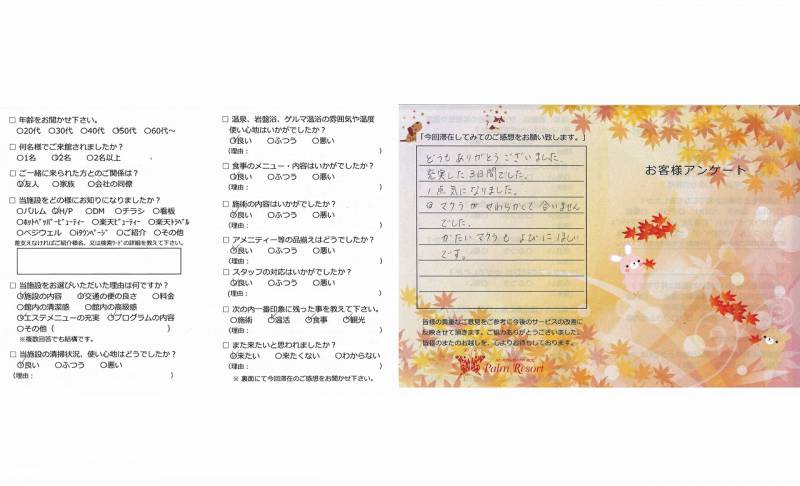 □ 年齢をお聞かせ下さい。
○20代 ○30代 ○40代 ○50代 ○60代～
□ 何名様でご来館されましたか？
○1名 ○2名 ○2名以上
□ ご一緒に来られた方とのご関係は？
○友人 ○家族 ○会社の同僚
□ 当施設をどの様にお知りになりましたか？
○パルム ○H/P ○DM ○チラシ ○看板
○ホットペッパービューティー ○楽天ビューティー ○楽天トラベル
○ベジウェル ○iタウンページ ○ご紹介 ○その他
差支えなければご紹介様名、又は検索ワードの詳細を教えて下さい。
□ 当施設をお選びいただいた理由は何ですか？
○施設の内容 ○交通の便の良さ ○料金
○館内の清潔感 ○館内の高級感
○エステメニューの充実 ○プログラムの内容
○その他（ ）
※複数回答でも結構です。
□ 当施設の清掃状況、使い心地はどうでしたか？
○良い ○ふつう ○悪い
(理由： )
□ 温泉、岩盤浴、ゲルマ温浴の雰囲気や温度
使い心地はいかがでしたか？
○良い ○ふつう ○悪い
(理由： )
□ 食事のメニュー・内容はいかがでしたか？
○良い ○ふつう ○悪い
(理由： )
□ 施術の内容はいかがでしたか？
○良い ○ふつう ○悪い
(理由： )
□ アメニティー等の品揃えはどうでしたか？
○良い ○ふつう ○悪い
(理由： )
□ スタッフの対応はいかがでしたか？
○良い ○ふつう ○悪い
(理由： )
□ 次の内一番印象に残った事を教えて下さい。
○施術 ○温活 ○食事 ○観光
(理由： )
□ また来たいと思われましたか？
○来たい ○来たくない ○わからない
(理由： )
※ 裏面にて今回滞在のご感想をお聞かせ下さい。
「今回滞在してみてのご感想をお願い致します。」
どうもありがとうございました。
充実した3日間でした。
1点気になりました。
マクラがやわらかくて合いません
でした。
かたいマクラもよびにほしい
です。
皆様の貴重なご意見をご参考に今後のサービスの改善に
反映させて頂きます。ご協力ありがとうございました。
皆様のまたのお越しを、心よりお待ちしております。
Palm Resort
お客様アンケート